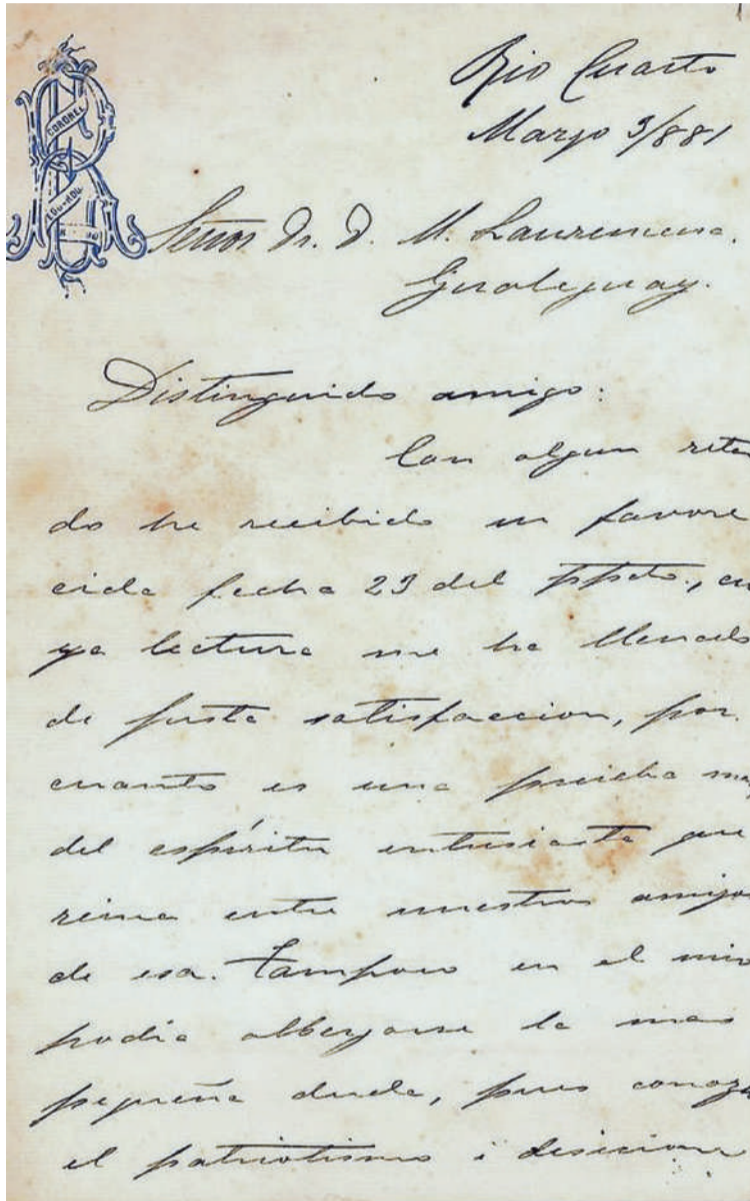 CORONEL
Rio Cuarto
Marzo 3/881
Señor Dr. D. M. Laurencena.
Gualeguay.
Distinguido amigo:
Con algun retar
do he recibido su favore
cida fecha 23 del ppdo., cu
ya lectura me ha llenado
de justa satisfaccion, por
cuanto es una prueba mas
del espíritu entusiasta que
reina entre nuestros amigos
de esa. Tampoco en el mio
podia albergarse la mas
pequeña duda, pues conozco
el patriotismo i desicion